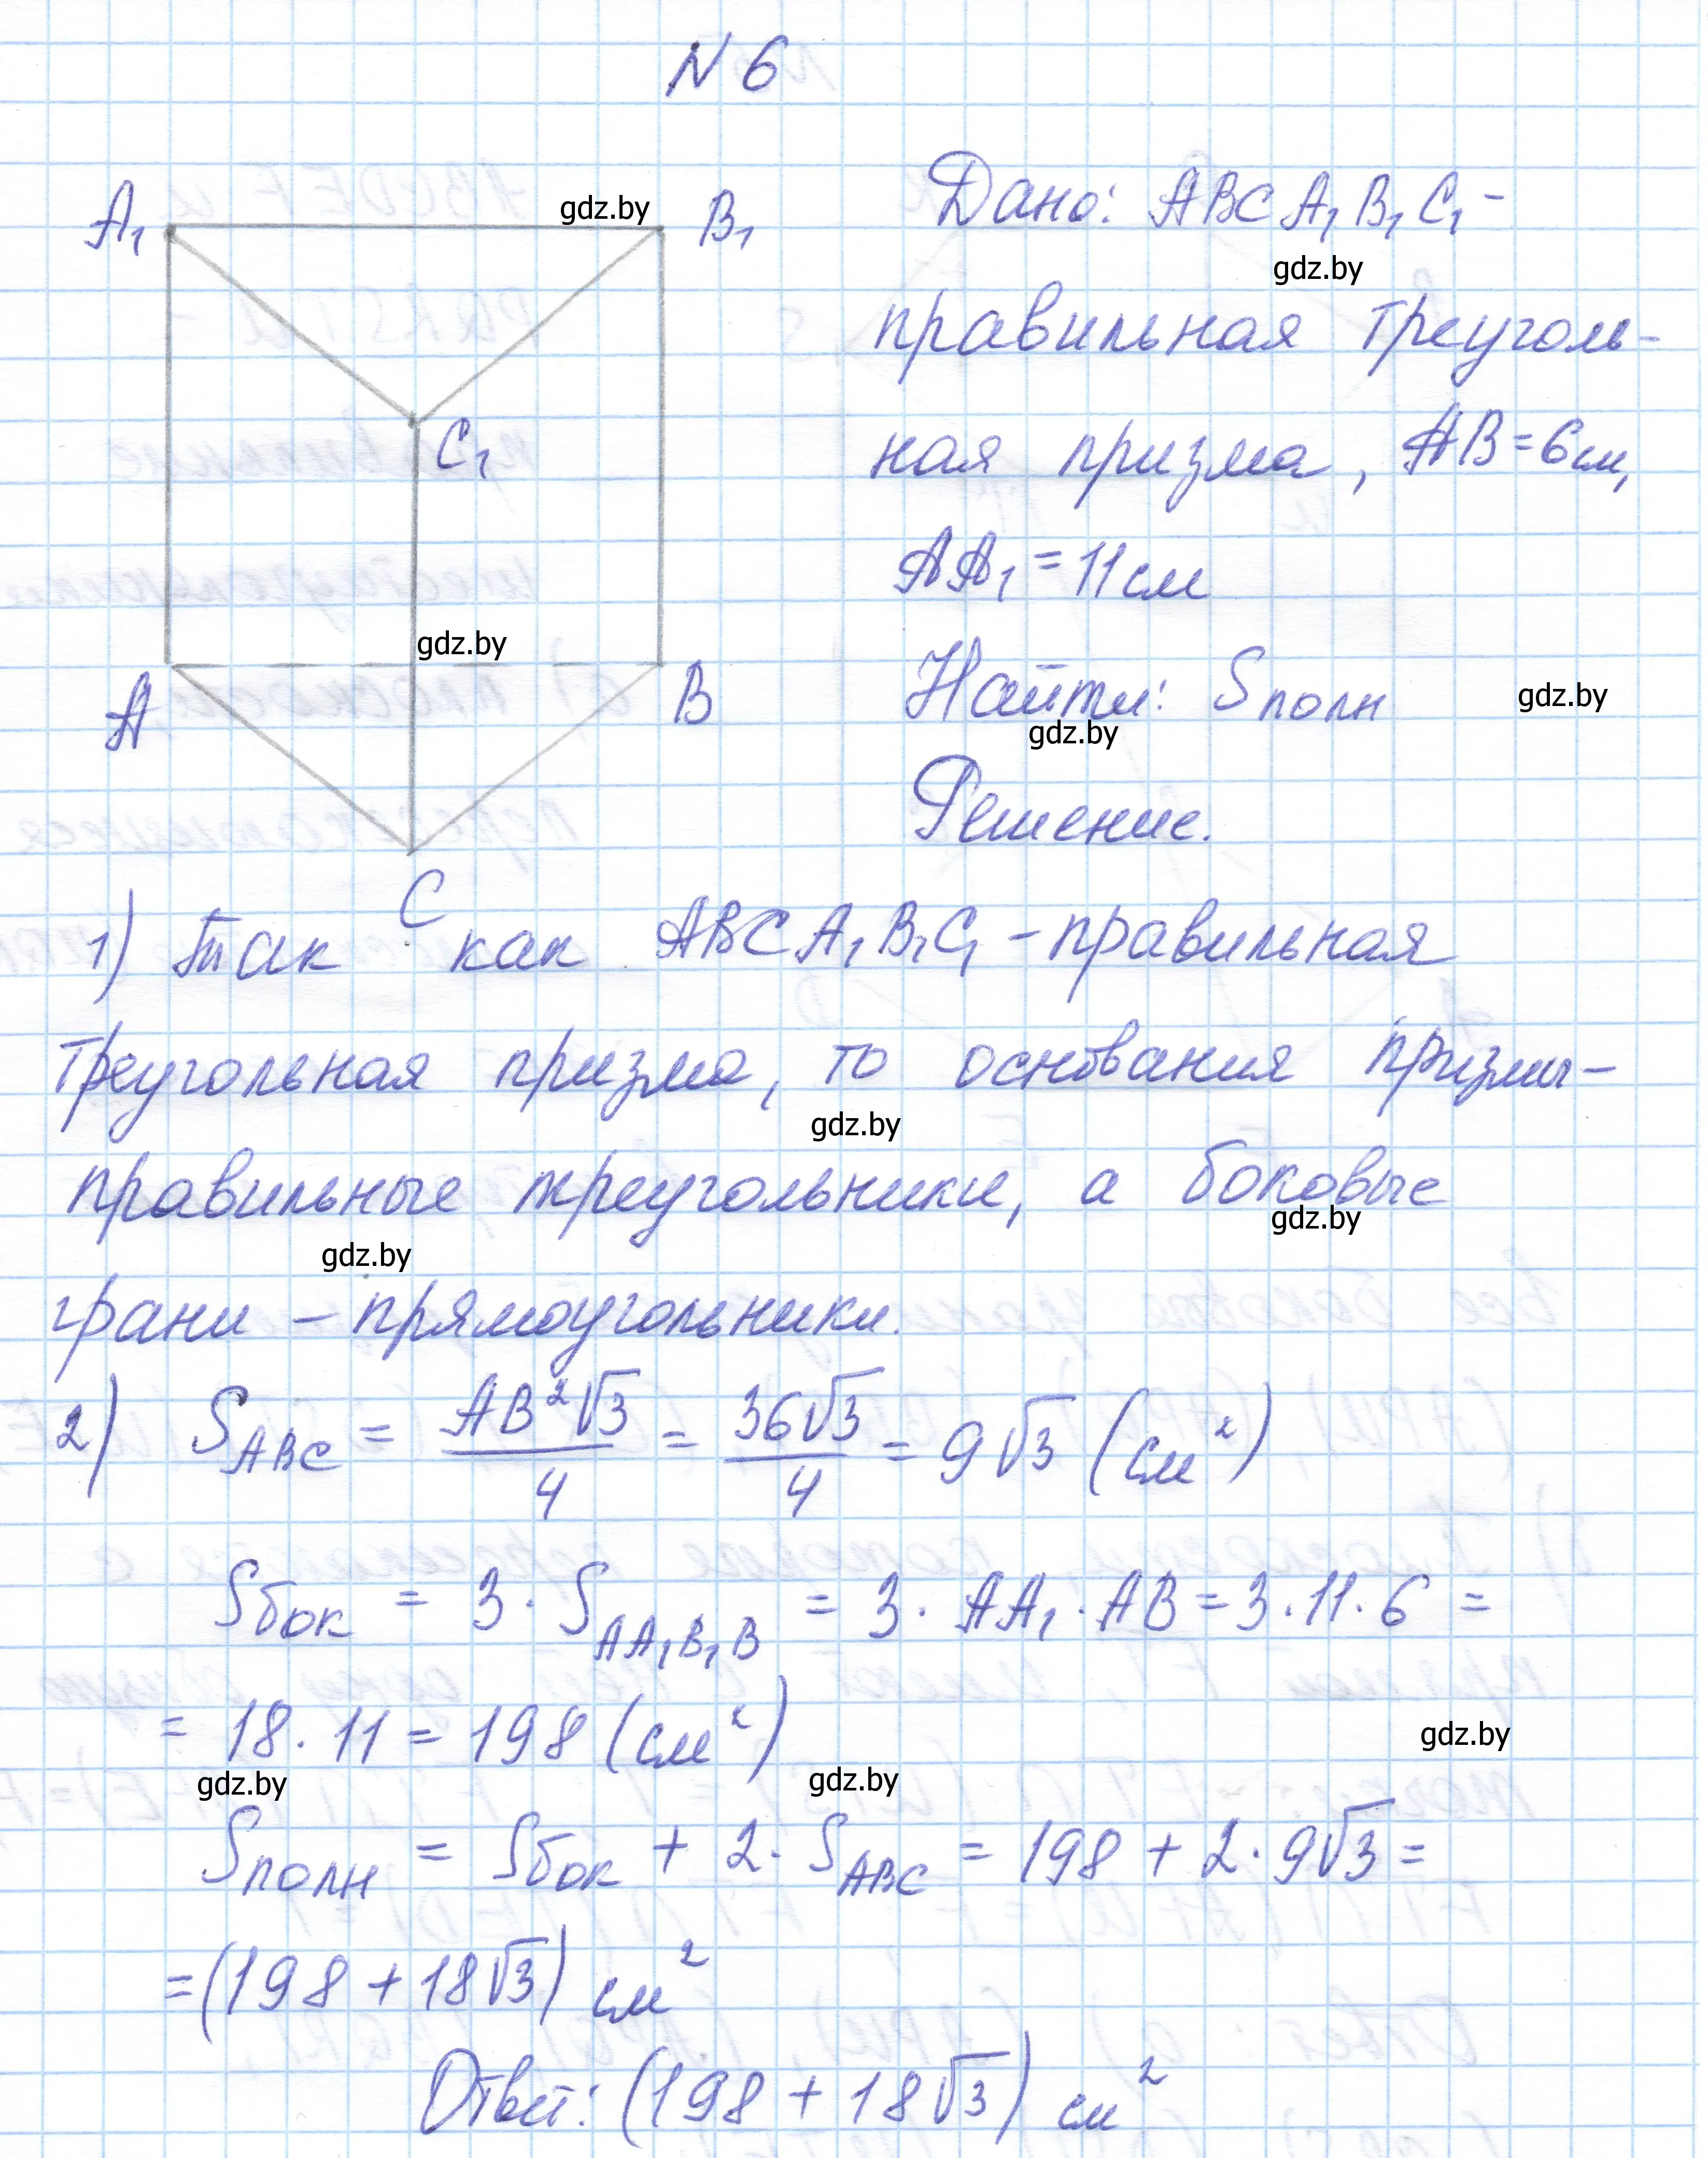 N 6
A₁ gdz.by B₁
Дано: ABCA₁B₁C₁ –
gdz.by
правильная треуголь-
C₁
ная призма, AB = 6 см,
AA₁ = 11 см
gdz.by
A B
Найти: Sполн gdz.by
gdz.by
Решение.
C
1) Так как ABCA₁B₁C₁ – правильная
треугольная призма, то основания призмы –
gdz.by
правильные треугольники, а боковые
gdz.by
gdz.by
грани – прямоугольники.
2) S_ABC = AB²√3/4 = 36√3/4 = 9√3 (см²)
Sбок = 3 · S_AA₁B₁B = 3 · AA₁ · AB = 3 · 11 · 6 =
= 18 · 11 = 198 (см²)
gdz.by
gdz.by gdz.by
Sполн = Sбок + 2 · S_ABC = 198 + 2 · 9√3 =
= (198 + 18√3) см²
Ответ: (198 + 18√3) см²